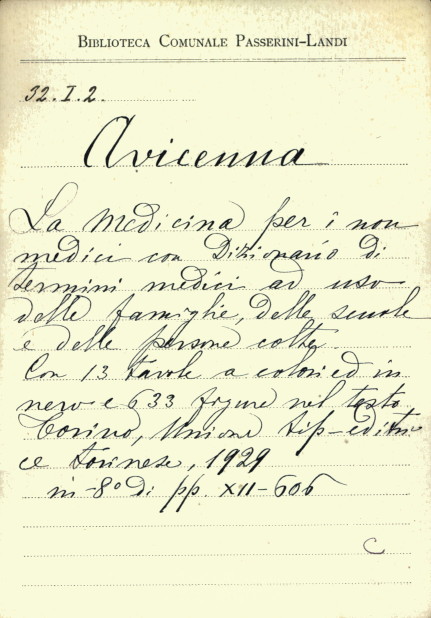 BIBLIOTECA COMUNALE PASSERINI-LANDI
32.I.2.
Avicenna
La Medicina per i non
medici con Dizionario di
termini medici ad uso
delle famiglie, delle scuole
e delle persone colte.
Con 13 tavole a colori ed in
nero e 633 figure nel testo.
Torino, Unione tip-editri
ce torinese, 1929
in-8° di pp. XII-606
C